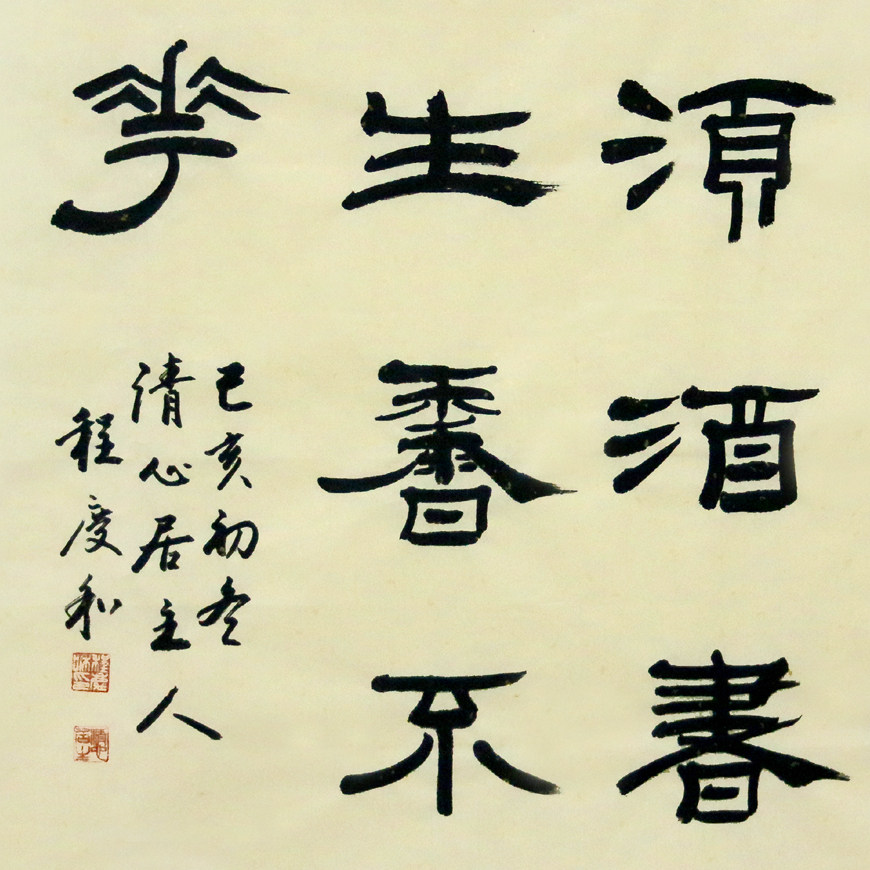 湏酒書
生香不
華
己亥初冬
清心居主人
程慶和